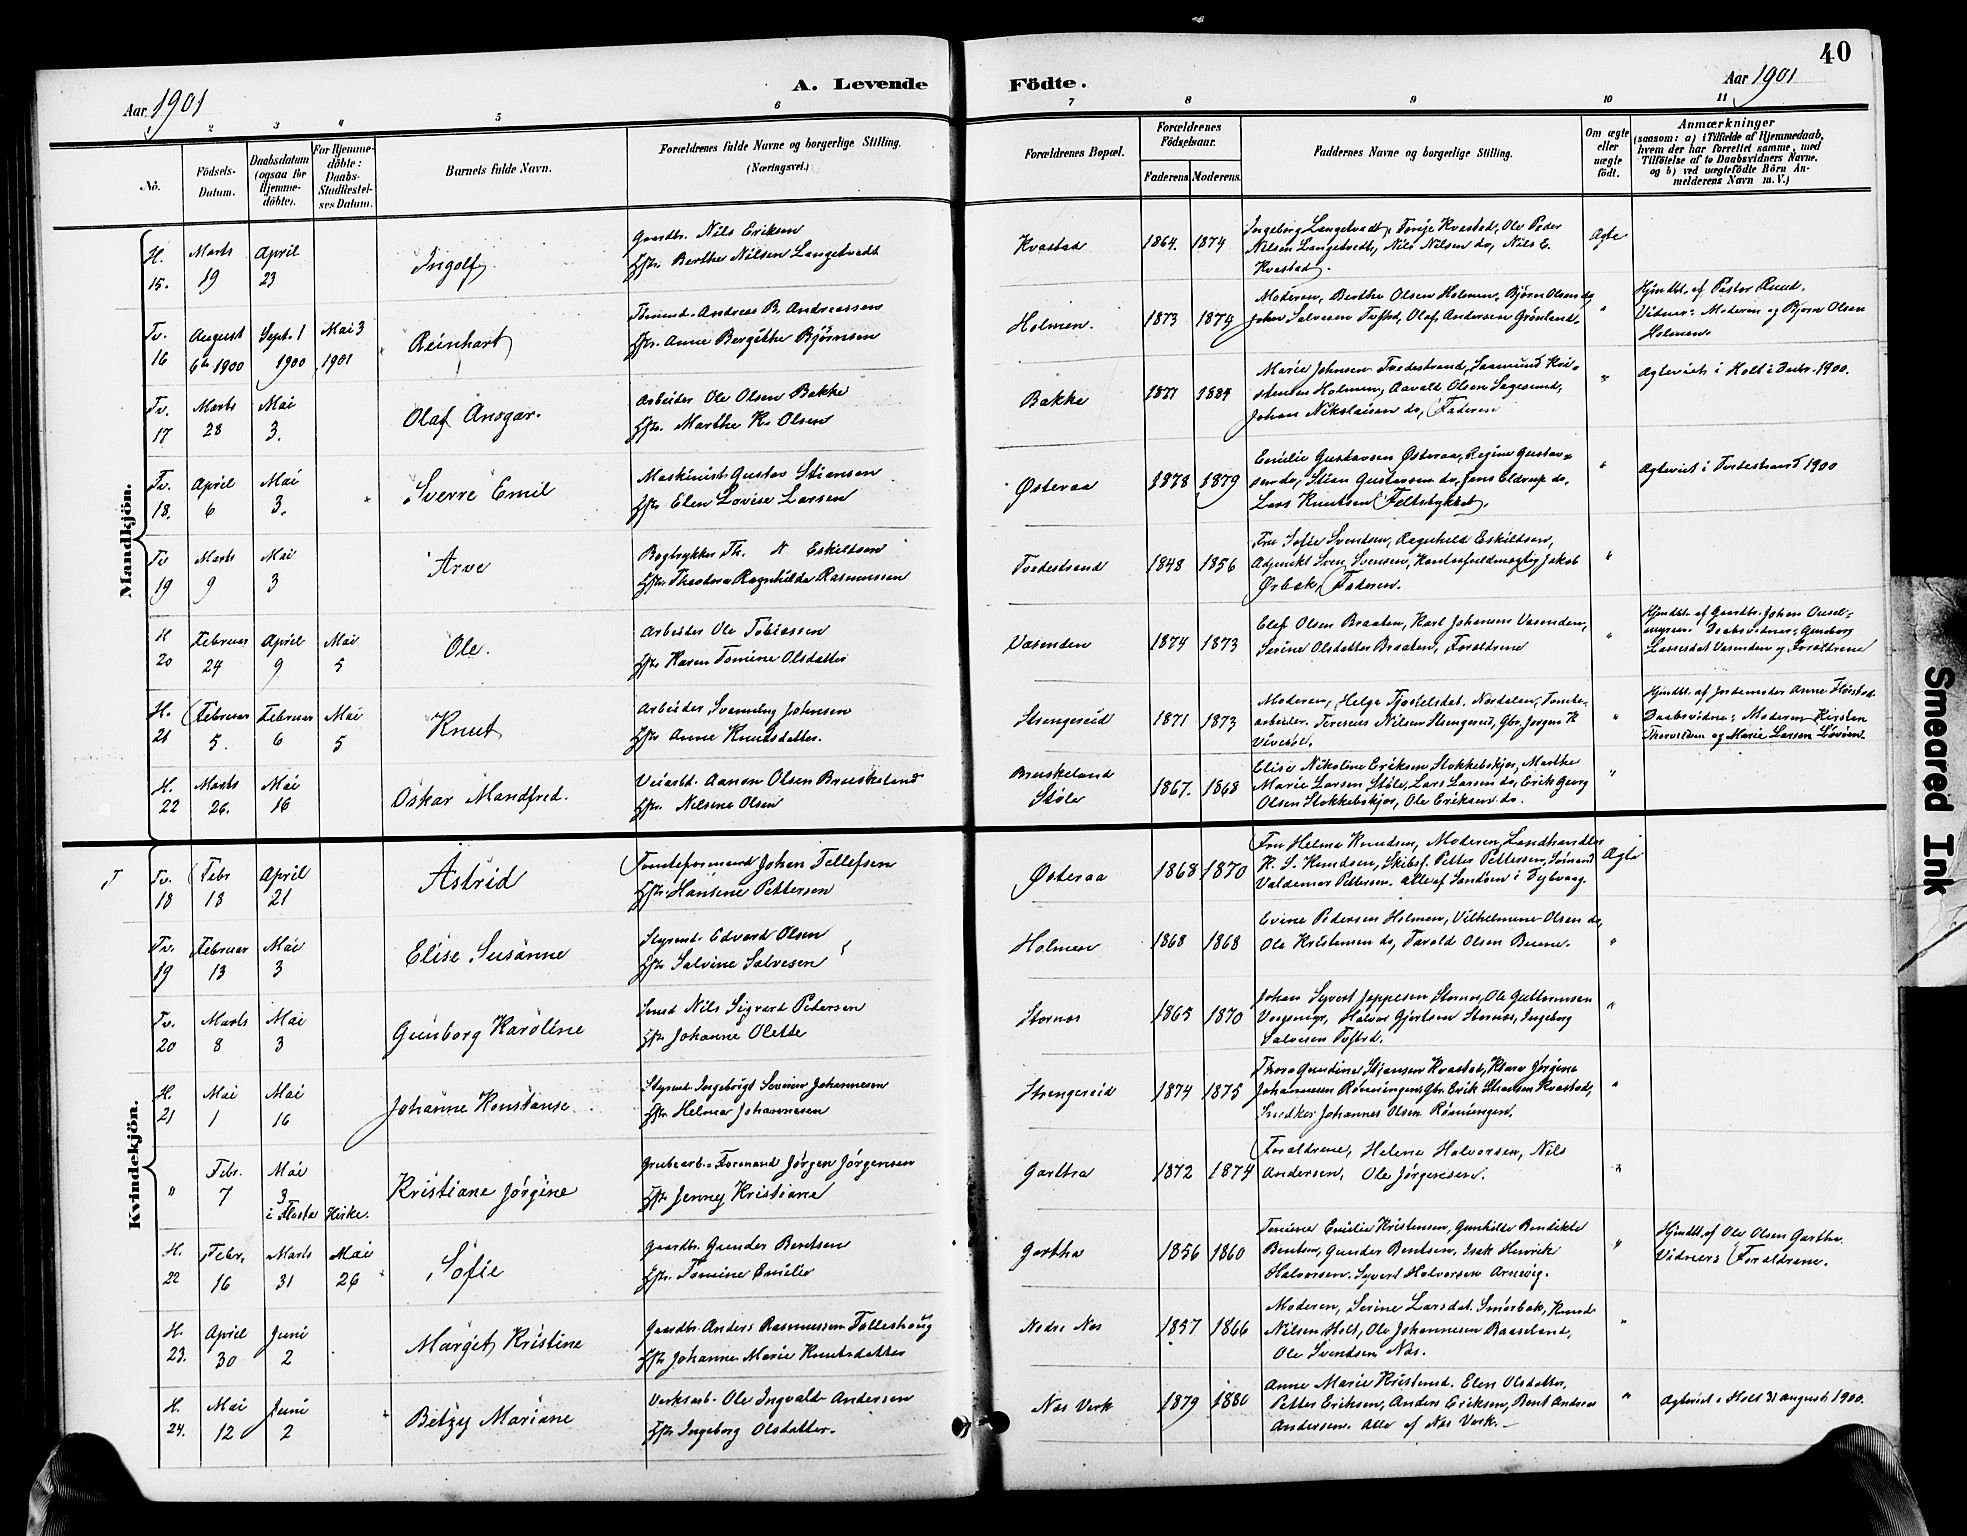 40
A. Levende Födte.
Aar 1901
Aar 1901
1 2 3 4 5 6 7 8 9 10 11
Nö.
Födsels-Datum.
Daabsdatum (ogsaa for Hjemme-döbte).
For Hjemme-döbte: Daabs-Stadfæstel-ses Datum.
Barnets fulde Navn.
Forældrenes fulde Navne og borgerlige Stilling.
(Næringsvei.)
Forældrenes Bopæl.
Forældrenes Födselsaar.
Faderens. Moderens.
Faddernes Navne og borgerlige Stilling.
Om ægte eller uægte födt.
Anmærkninger
(saasom: a) i Tilfælde af Hjemmedaab, hvem der har forrettet samme, med Tilföielse af to Daabsvidners Navne. og b) ved uægtefödte Börn An-melderens Navn m. V.)
Mandkjön.
H. 15. Marts 19 April 23 Ingolf
Gaardbr. Nils Eriksen
Hstr. Berthe Nilsen Langetvedt
Kvastad 1864. 1874
Ingeborg Langetvedt, Terje Kvastad, Ole Peder
Nilsen Langetvedt, Nils Nilsen do, Nils E.
Kvastad.
Ægte
Tv. 16 August 6te 1900 Septr. 1 1900 Mai 3 1901 Reinhart
Andreas B. Andreassen
Hstr. Anne Bergithe Bjørnsen
Holmen. 1873 1874
Moderen, Berthe Olsen Holmen, Bjørn Olsen do
John Salvesen Tofted, Olaf Andersen Grønland.
"
Hjmdbt. af Pastor Ruud.
Vidner: Moderen og Bjørn Olsen
Holmen.
Tv. 17 Marts 28 Mai 3. Olaf Ansgar.
Arbeider Ole Olsen Bakke
Hstr. Marthe K. Olsen
Bakke 1877 1884
Marie Johnsen Tvedestrand, Saamund Kri-
stensen Holmen, Aavald Olsen Sagesund,
Johan Nikolaisen do, Faderen
"
Ægteviet i Holt i Decbr. 1900.
Tv. 18. April 6 Mai 3. Sverre Emil
Maskinist Gustav Stiansen
Hstr. Elen Lovise Larsen
Østeraa 1878 1879
Emilie Gustavsen Østeraa, Regine Gustav-
sen do, Stian Gustavsen do, Jens Eldrup do,
Lars Knutsen
"
Ægteviet i Tvedestrand 1900
Tv 19 Marts 9 Mai 3 Arve
Bogtrykker Th. N Eskildsen
Hstr. Theodora Ragnhilda Rasmussen
Tvedestrand 1848 1856
Fru Sofie Svendsen, Ragnhild Eskildsen,
Adjunkt Sven Svensen, Kontorfuldmægtig Jakob
Ørbæk, Faderen.
"
H 20 Februar 24 April 9 Mai 5 Ole.
Arbeider Ole Tobiassen
Hstr Karen Tomine Olsdatter
Vasenden 1874 1873
Elef Olsen Braaten, Karl Johansen Vasenden,
Serine Olsdatter Braaten, Forældrene
"
Hjmdbt. af Gaardbr. Johan Ousel-
myren. Daabsvidner: Gunborg
Lassesdat Vasenden og Forældrene
H. 21 Februar 5. Februar 6 Mai 5 Knut
Arbeider Svenning Johnsen
Hstr Anne Knutsdatter.
Strengereid 1871 1873
Moderen, Helge Tjøstelsdat. Nordalen, Tomte-
arbeider. Teresius Nilsen Strengereid, Gbr. Jørgen K
Vivestøl.
"
Hjmdbt. af Jordemoder Anne Fløistad.
Daabsvidne: Moderen Kirsten
Thorvaldsen og Marie Larsen Løvien.
H. 22 Marts 26. Mai 16 Oskar Mandfred.
Veiarbd. Aanon Olsen Bruskeland
Hstr. Nilsine Olsen
Bruskeland
Støle 1867. 1868
Elise Nikoline Eriksen Stokkebskjær, Marthe
Marie Larsen Støle, Lars Larsen do, Erik Georg
Olsen Stokkebskjær, Ole Eriksen do.
"
Kvindekjön.
Tv. 18 Febr 13 April 21 Astrid
Tomteformand Johan Tellefsen
Hstr. Hansine Pettersen
Østeraa 1868 1870
Fru Helma Knudsen, Moderen, Landhandler
K. S. Knudsen, Skibsf. Petter Pettersen, Sømand
Valdemar Pettersen. alle af Sandøen i Dybvaag.
Ægte
Tv. 19 Februar 13 Mai 3 Elise Susanne
Styrmd. Edvard Olsen
Hstr Salvine Salvesen
Holmen 1868 1868
Evine Pedersen Holmen, Vilhelmine Olsen do,
Ole Kristensen do, Tarald Olsen Buene.
"
Tv. 20 Marts 8 Mai 3 Gunborg Karoline
Smed Nils Sigvard Petersen
Hstr Johanne Olette
Stornes 1865 1870
Johan Syvert Jeppesen Stornes, Ole Guttormsen
Vegsmyr, Halvor Gjertsen Stornæs, Ingeborg
Salvesen Tofted.
"
H. 21 Mai 1 Mai 16 Johanne Konstanse
Styrmd. Ingebrigt Severin Johannesen
Hstr. Helmer Johannesen
Strengereid 1874 1875
Thora Gundine Stiansen Kvastad, Klara Jørgine
Johannesen Rømningen, Gbr. Erik Stiansen Kvastad,
Snedker Johannes Olsen Rømningen.
"
" Febr. 7 Mai 3 i Flosta Kirke. Kristiane Jørgine
Grubearb. Formand Jørgen Jørgensen
Hstr Jenny Kristiane
Gartha 1872 1874
Forældrene, Helene Halvorsen, Nils
Andersen, Ole Jørgensen.
"
H. 22 Febr. 16 Marts 31 Mai 26 Sofie
Gaardbr. Gunder Bentsen
Hstr. Tomine Emilie
Gartha 1856 1860
Tomine Emilie Kristensen, Gunhilde Bendikte
Bentsen, Gunder Bentsen, Isak Henrik
Halvorsen. Syvert Halvorsen Arnevig.
"
Hjmdbt. af Ole Olsen Gartha.
Vidner: Forældrene.
H. 23. April 30 Juni 2 Marget Kristine
Gaardbr. Anders Rasmussen Tolleshoug
Hstr Johanne Marie Knutsdatter
Nedre Næs 1857 1866
Moderen, Serine Larsdat. Smørbæk, Knud
Nilsen Holt, Ole Johannesen Baaseland,
Ole Svendsen Næs.
"
H. 24. Mai 12 Juni 2 Betzy Mariane
Verksarb. Ole Ingvald Andersen
Hstr Ingeborg Olsdatter.
Næs Verk 1879 1880
Anne Marie Kristensd. Elen Olsdatter,
Petter Eriksen, Anders Eriksen, Bent Andreas
Andersen. alle af Næs Verk.
"
Ægteviet i Holt 31 august 1900.
Smeared Ink